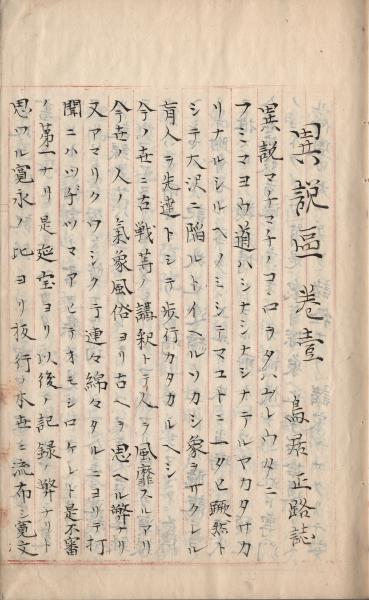 異説區卷壹 鳥居正路誌
異説マチマチノコヽロヲタハフレウタニ
フミマヨウ道ハシナシナシナテルヤカタサカ
リナルシルヘノミシテマコトニ一タヒ蹶然ト
シテ大沢ニ陥ルトイヘルソカシ象ヲサクレル
盲人ヲ先達トシテ歩行カタカルヘシ
今ノ世ニ古戦等ノ講釈トテ人ヲ風靡スルアリ
今世ノ人ノ氣象風俗ヨリ古ヘヲ思ヘル弊ナリ
又アマリクワシク言連々綿々タルニヨリテ打
聞ニハツヂツマアヒテオモシロケレト是不審
ノ第一ナリ是延宝ヨリ以後ノ記録ノ弊ナリト
思ワル寛永ノ比ヨリ板行ノ本世ニ流布シ寛文